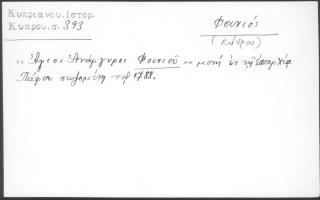 Κυπριανου. Ιστορ.
Κυπρου. σ. 393
Φοινιός
(Κύπρου)
,, Ἅγιοι Ἀνάργυροι Φοινιοῦ ,, μονή ἐν τῇ ἐπαρχίᾳ
Πάφου σωζομένη 1788.